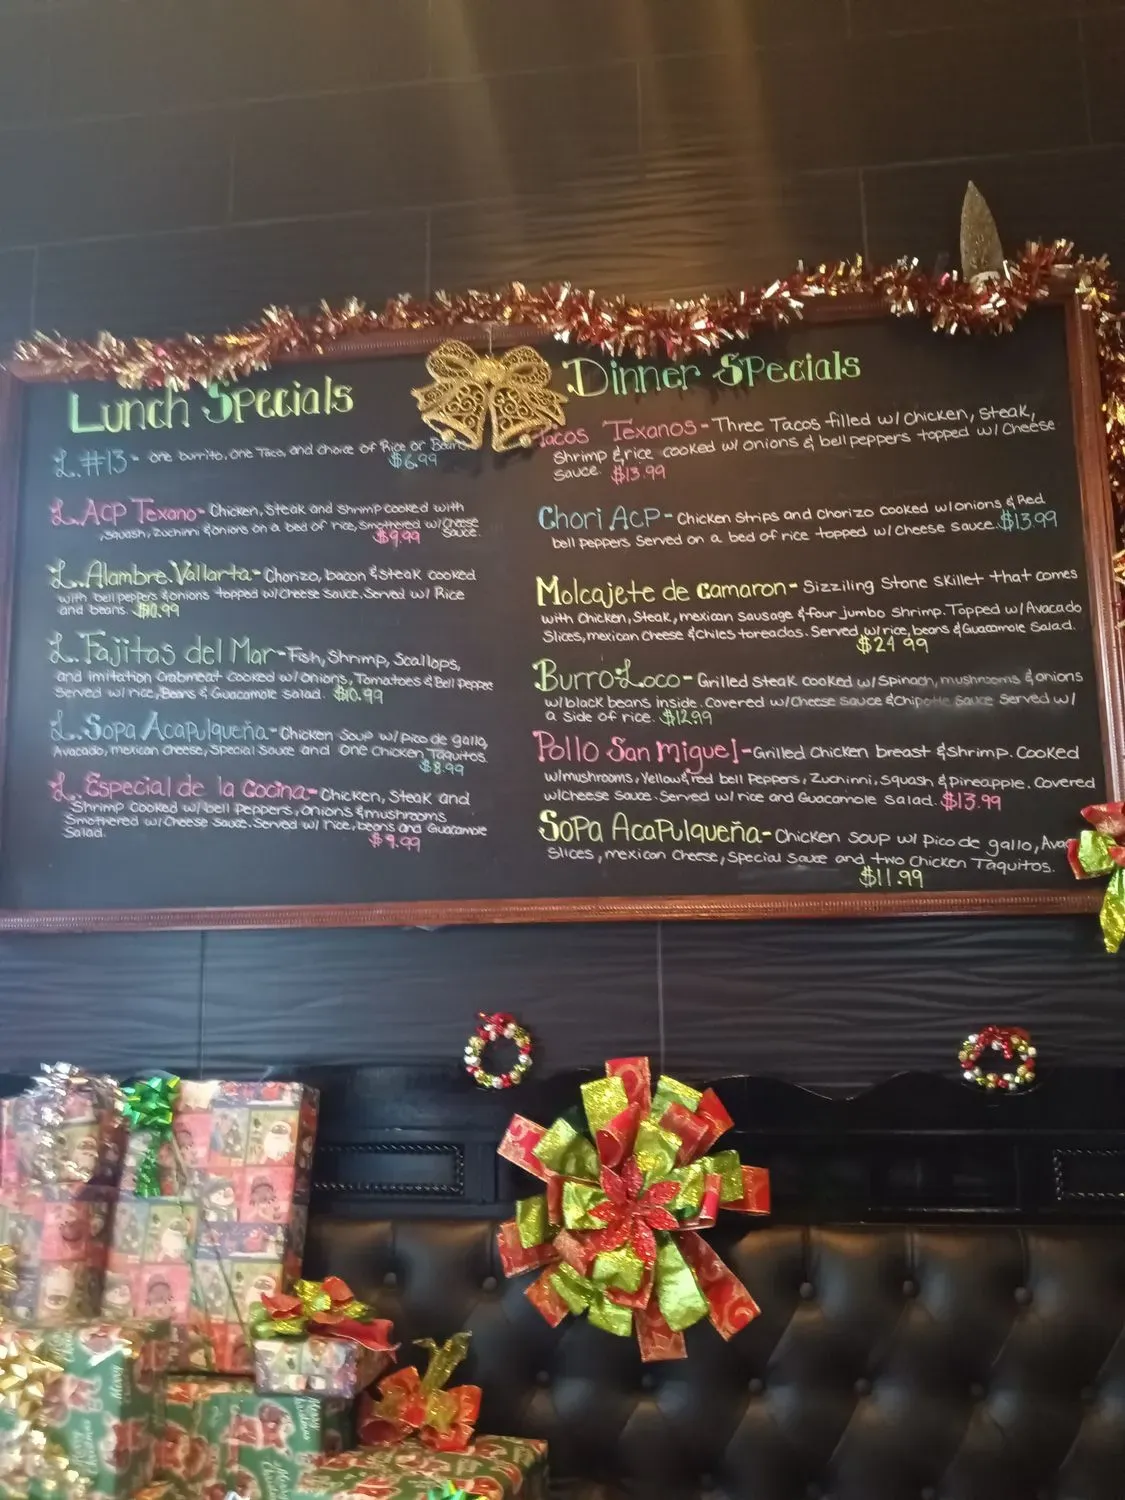 Lunch Specials
L. #13 - One burrito, One Taco, and choice of Rice or Beans
$6.99
L. ACP Texano - Chicken, Steak and Shrimp cooked with
, squash, Zuchinni & onions on a bed of rice, Smothered w/ Cheese
Sauce.
$9.99
L. Alambre Vallarta - Chorizo, bacon & Steak cooked
with bell peppers & onions topped w/ Cheese Sauce. Served w/ Rice
and beans. $10.99
L. Fajitas del Mar - Fish, Shrimp, Scallops,
and Imitation Crabmeat cooked w/ Onions, Tomatoes & Bell Pepper
Served w/ rice, Beans & Guacamole Salad. $10.99
L. Sopa Acapulqueña - Chicken Soup w/ Pico de gallo,
Avocado, mexican Cheese, Special Sauce and One Chicken Taquitos.
$8.99
L. Especial de la Cocina - Chicken, Steak and
Shrimp Cooked w/ bell Peppers, onions & mushrooms
Smothered w/ Cheese Sauce. Served w/ rice, beans and Guacamole
Salad.
$9.99
Dinner Specials
Tacos Texanos - Three Tacos filled w/ Chicken, Steak,
Shrimp & rice cooked w/ onions & bell peppers topped w/ Cheese
Sauce. $13.99
Chori ACP - Chicken Strips and Chorizo cooked w/ onions & Red
bell peppers Served on a bed of rice topped w/ Cheese Sauce. $13.99
Molcajete de Camaron - Sizziling Stone Skillet that comes
with Chicken, Steak, mexican Sausage & four jumbo Shrimp. Topped w/ Avacado
Slices, mexican Cheese & Chiles toreados. Served w/ rice, beans & Guacamole Salad.
$24.99
Burro Loco - Grilled Steak cooked w/ Spinach, mushrooms & onions
w/ black beans inside. Covered w/ Cheese Sauce & Chipotle Sauce Served w/
a Side of rice. $12.99
Pollo San Miguel - Grilled Chicken breast & Shrimp. Cooked
w/ mushrooms, Yellow & red bell Peppers, Zuchinni, Squash & Pineapple. Covered
w/ Cheese Sauce. Served w/ rice and Guacamole Salad. $13.99
Sopa Acapulqueña - Chicken Soup w/ Pico de gallo,
Slices, mexican Cheese, Special Sauce and two Chicken Taquitos.
$11.99